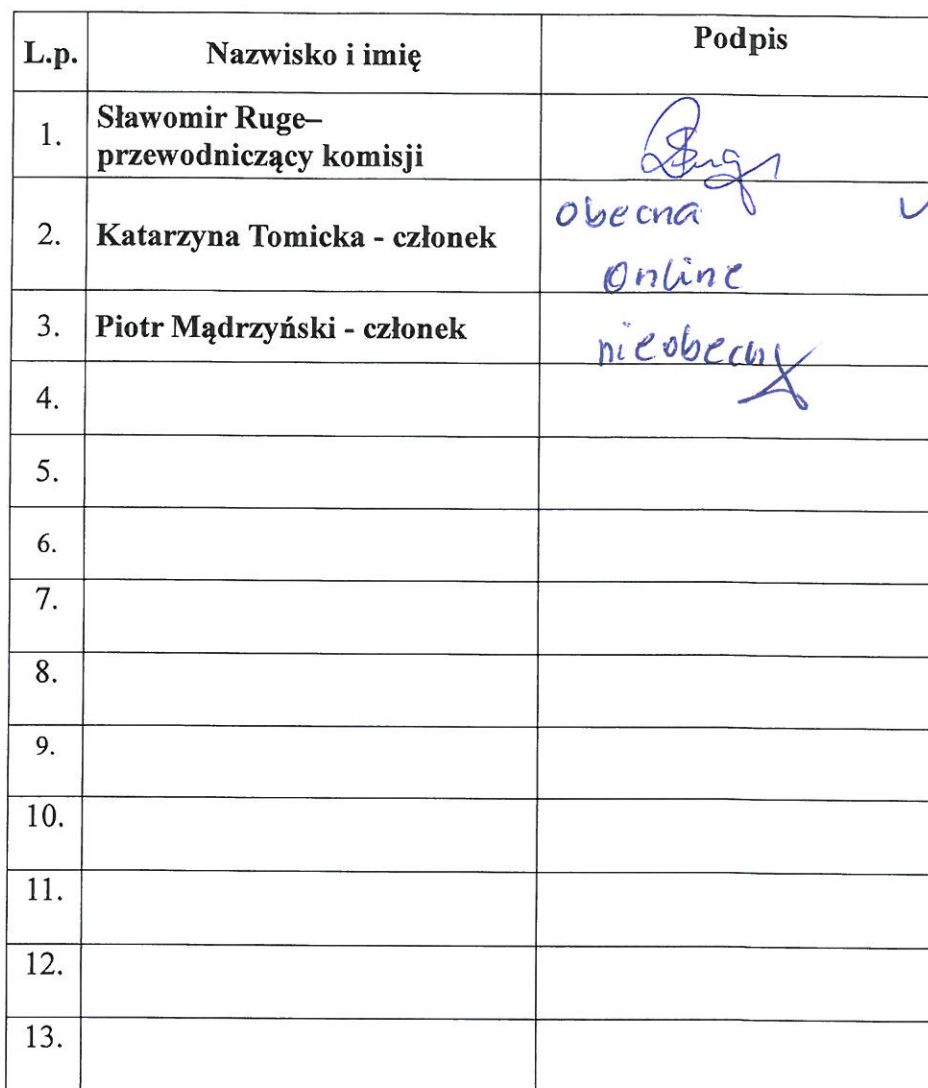 L.p. Nazwisko i imię Podpis
1. Sławomir Ruge–
przewodniczący komisji
2. Katarzyna Tomicka - członek obecna
online
3. Piotr Mądrzyński - członek nieobecny
4.
5.
6.
7.
8.
9.
10.
11.
12.
13.